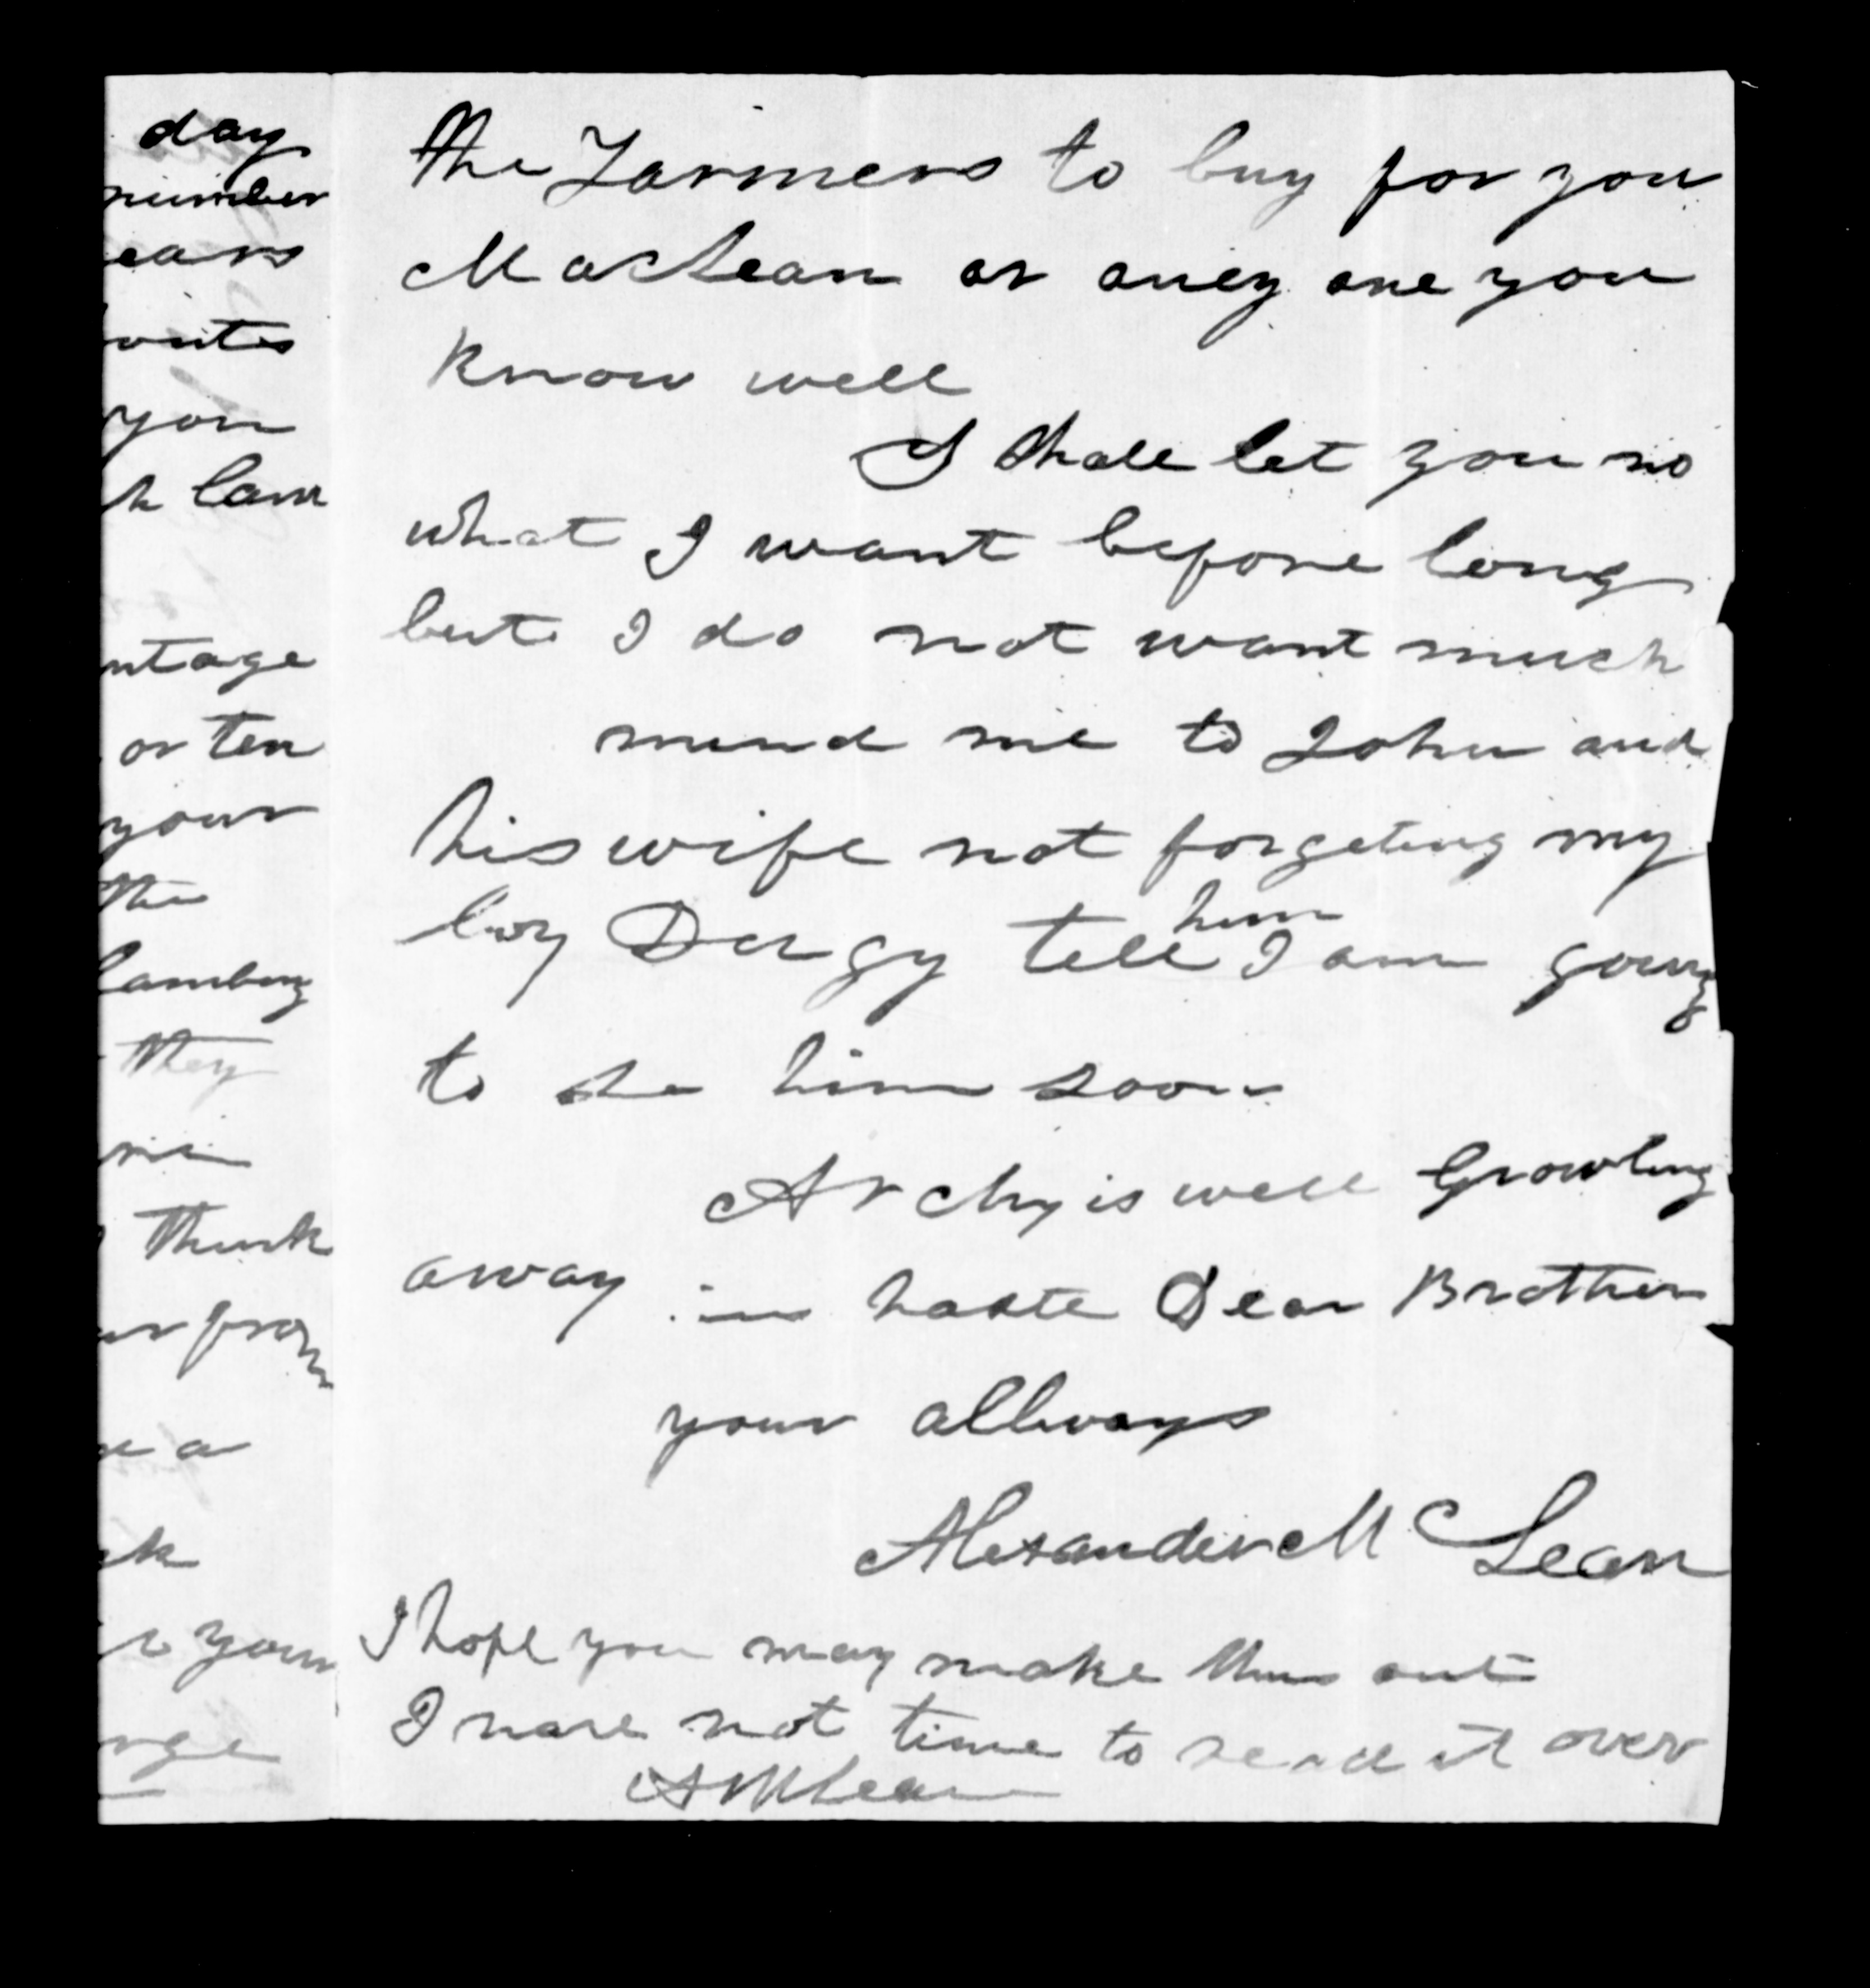 day
number
ears
you
lam
ntage
or ten
your
the
lambing
they
think
from
a
your
the Farmers to buy for you
MacLean or aney one you
know well
I Shall let you no
what I want before long
but I do not want much
mind me to John and
his wife not forgeting my
boy tell him I am going
to se him soon
Archy is well Growling
away in haste Dear Brother
your allways
Alexander McLean
I hope you may make this out
I have not time to read it over
A McLean